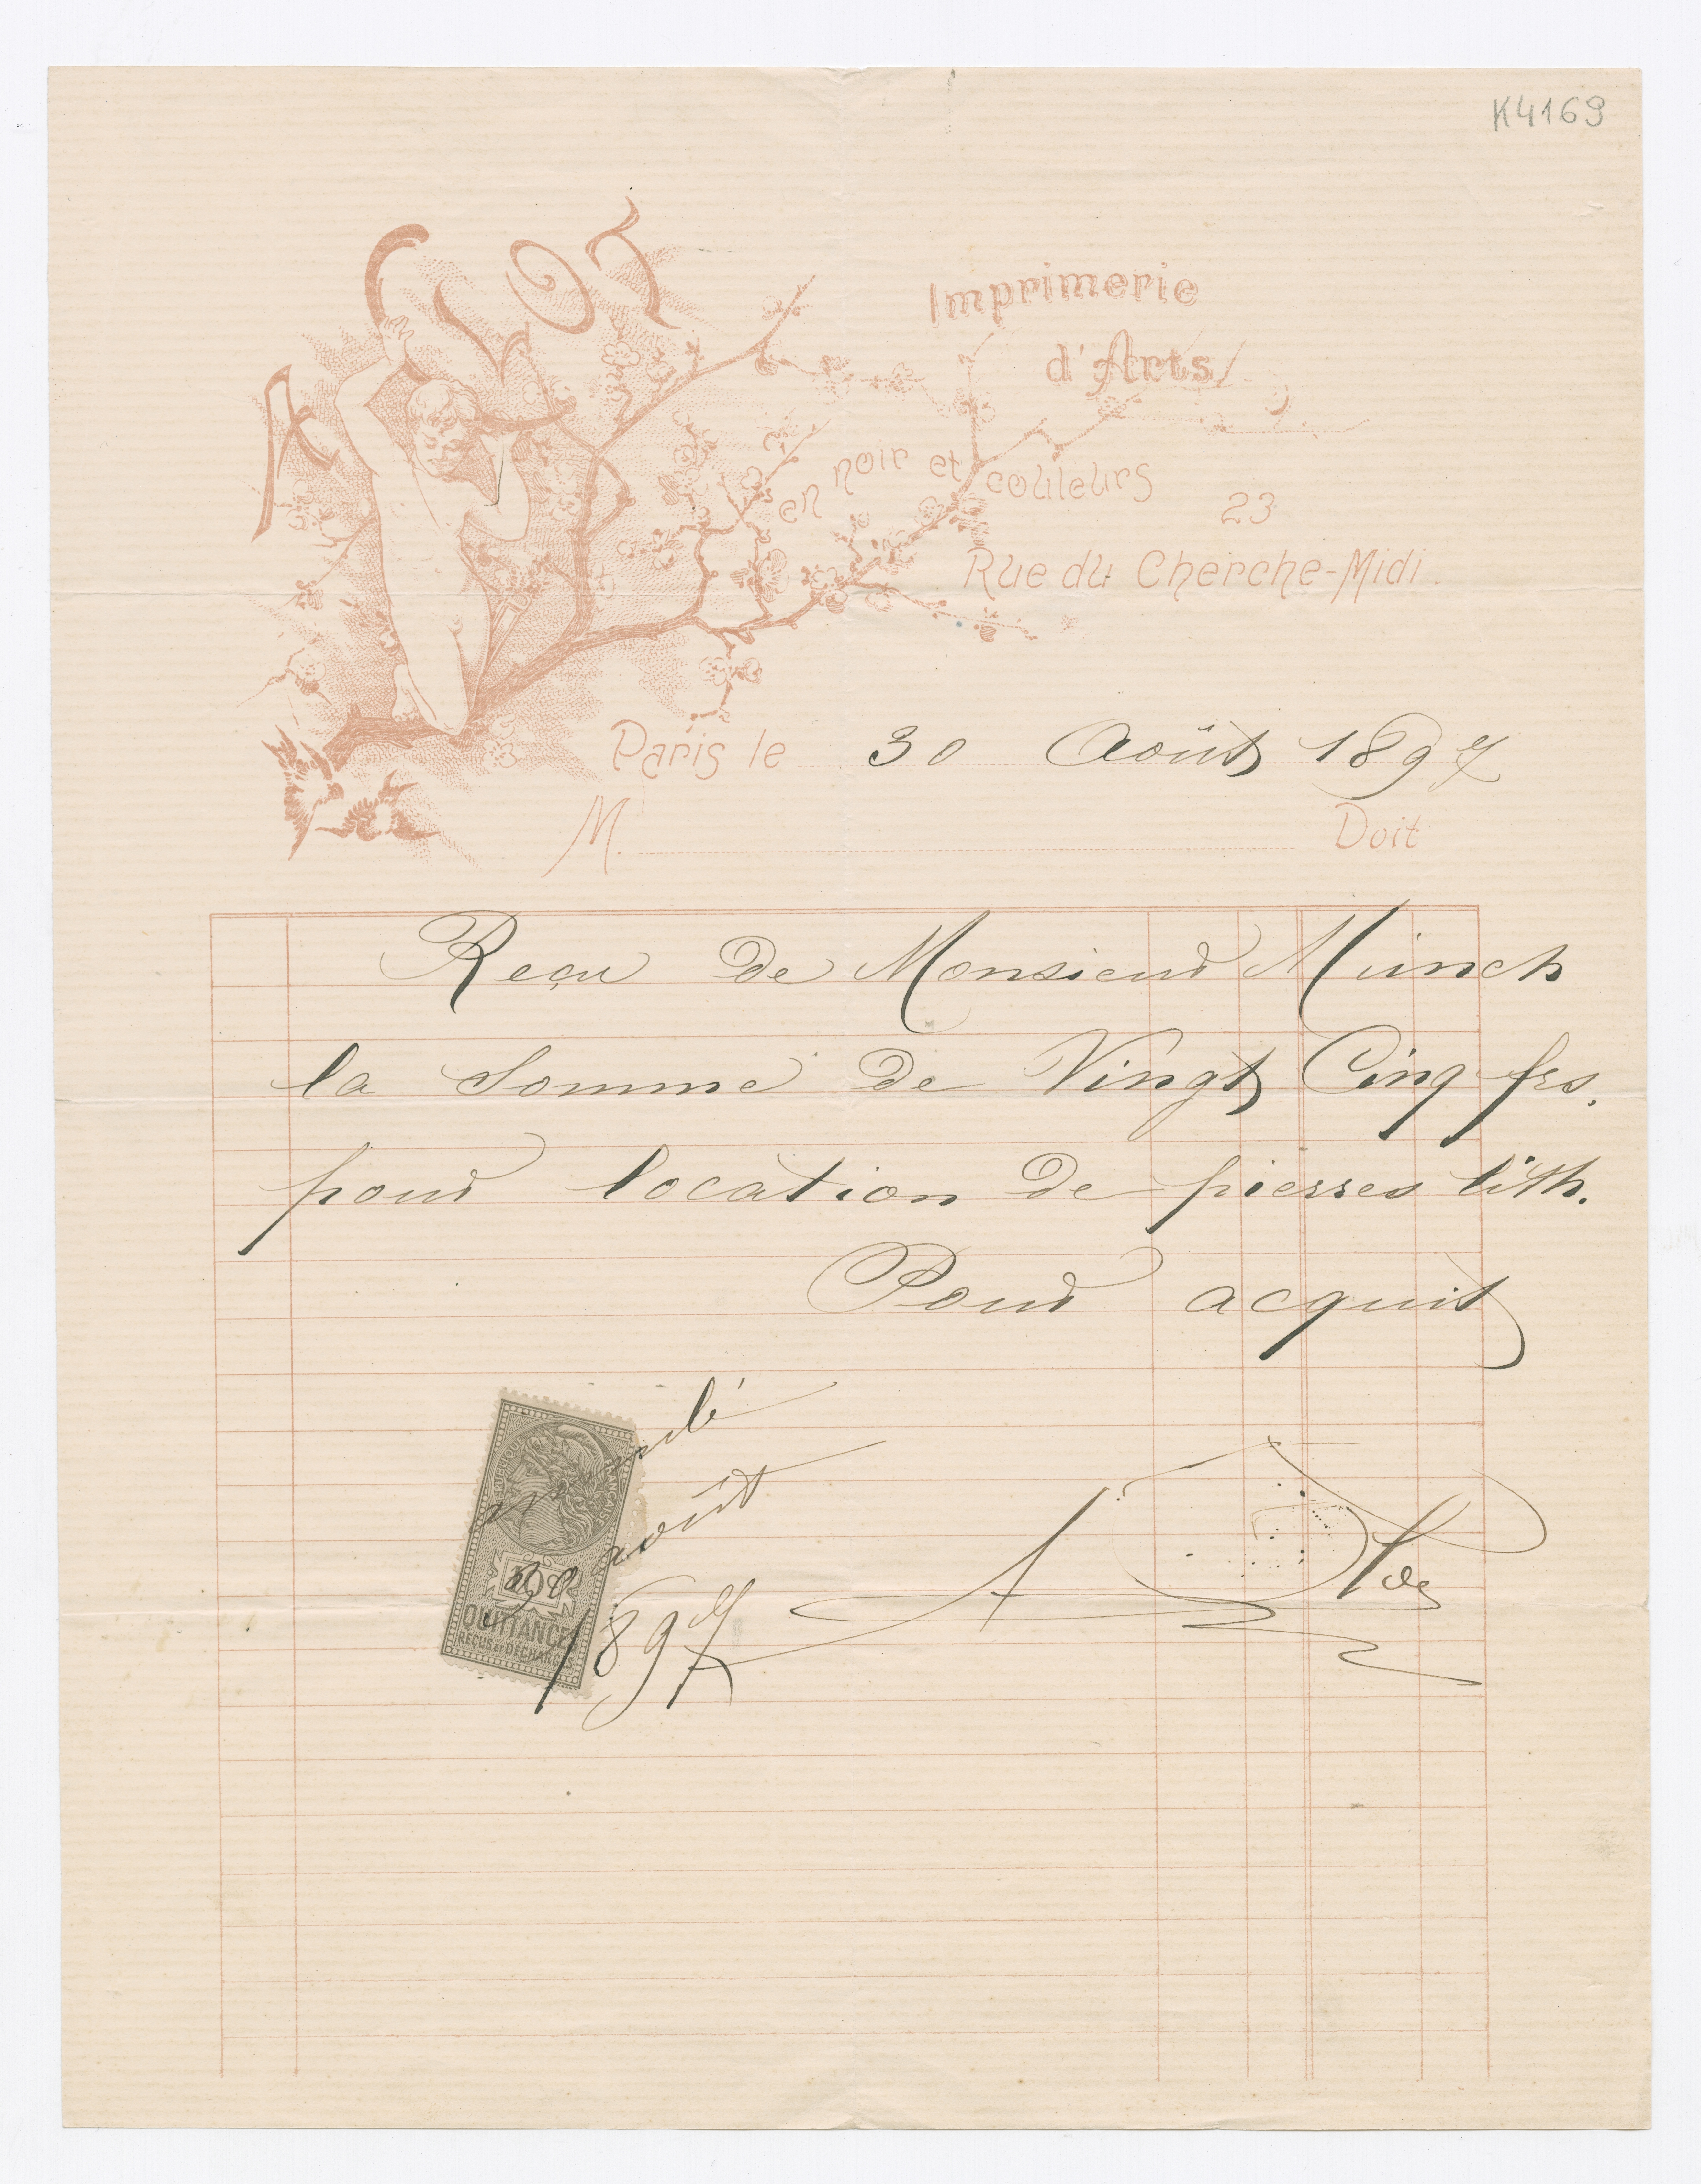 K4169
A CLOT
Imprimerie
d'Arts
en noir et couleurs
23
Rue du Cherche-Midi.
Paris le 30 Août 1897
M. Doit
Reçu de Monsieur Münch
la somme de Vingt Cinq frs.
pour location de pierres lith.
Pour acquit
RÉPUBLIQUE FRANÇAISE
QUITTANCES
REÇUS ET DÉCHARGES
30 août
1897
A Clot